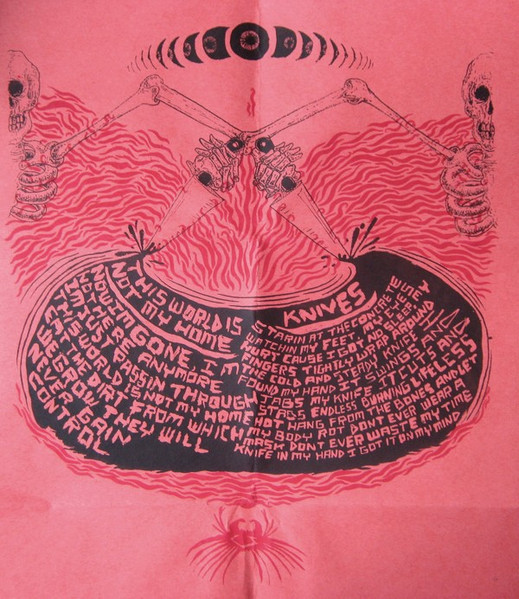 THIS WORLD IS
NOT MY HOME
NOW IM GONE, I'M
NOT HERE ANYMORE
IM JUST PASSIN THROUGH
THIS WORLD IS NOT MY HOME
EAT THE DIRT FROM WHICH
WE GROW THEY WILL
NEVER GAIN
CONTROL
KNIVES
STARIN AT THE CONCRETE
WATCHIN MY FEET, MY EYES
HURT CAUSE I GOT NO SLEEP
FINGERS TIGHTLY WRAP AROUND
THE COLD AND STEADY KNIFE I
FOUND MY HAND IT SWINGS AND
JABS MY KNIFE IT CUTS AND
STABS ENDLESS BURNING LIFELESS
HOT HANG FROM THE BONES AND LET
MY BODY ROT DONT EVER WEAR A
MASK DONT EVER WASTE MY TIME
KNIFE IN MY HAND I GOT IT ON MY MIND